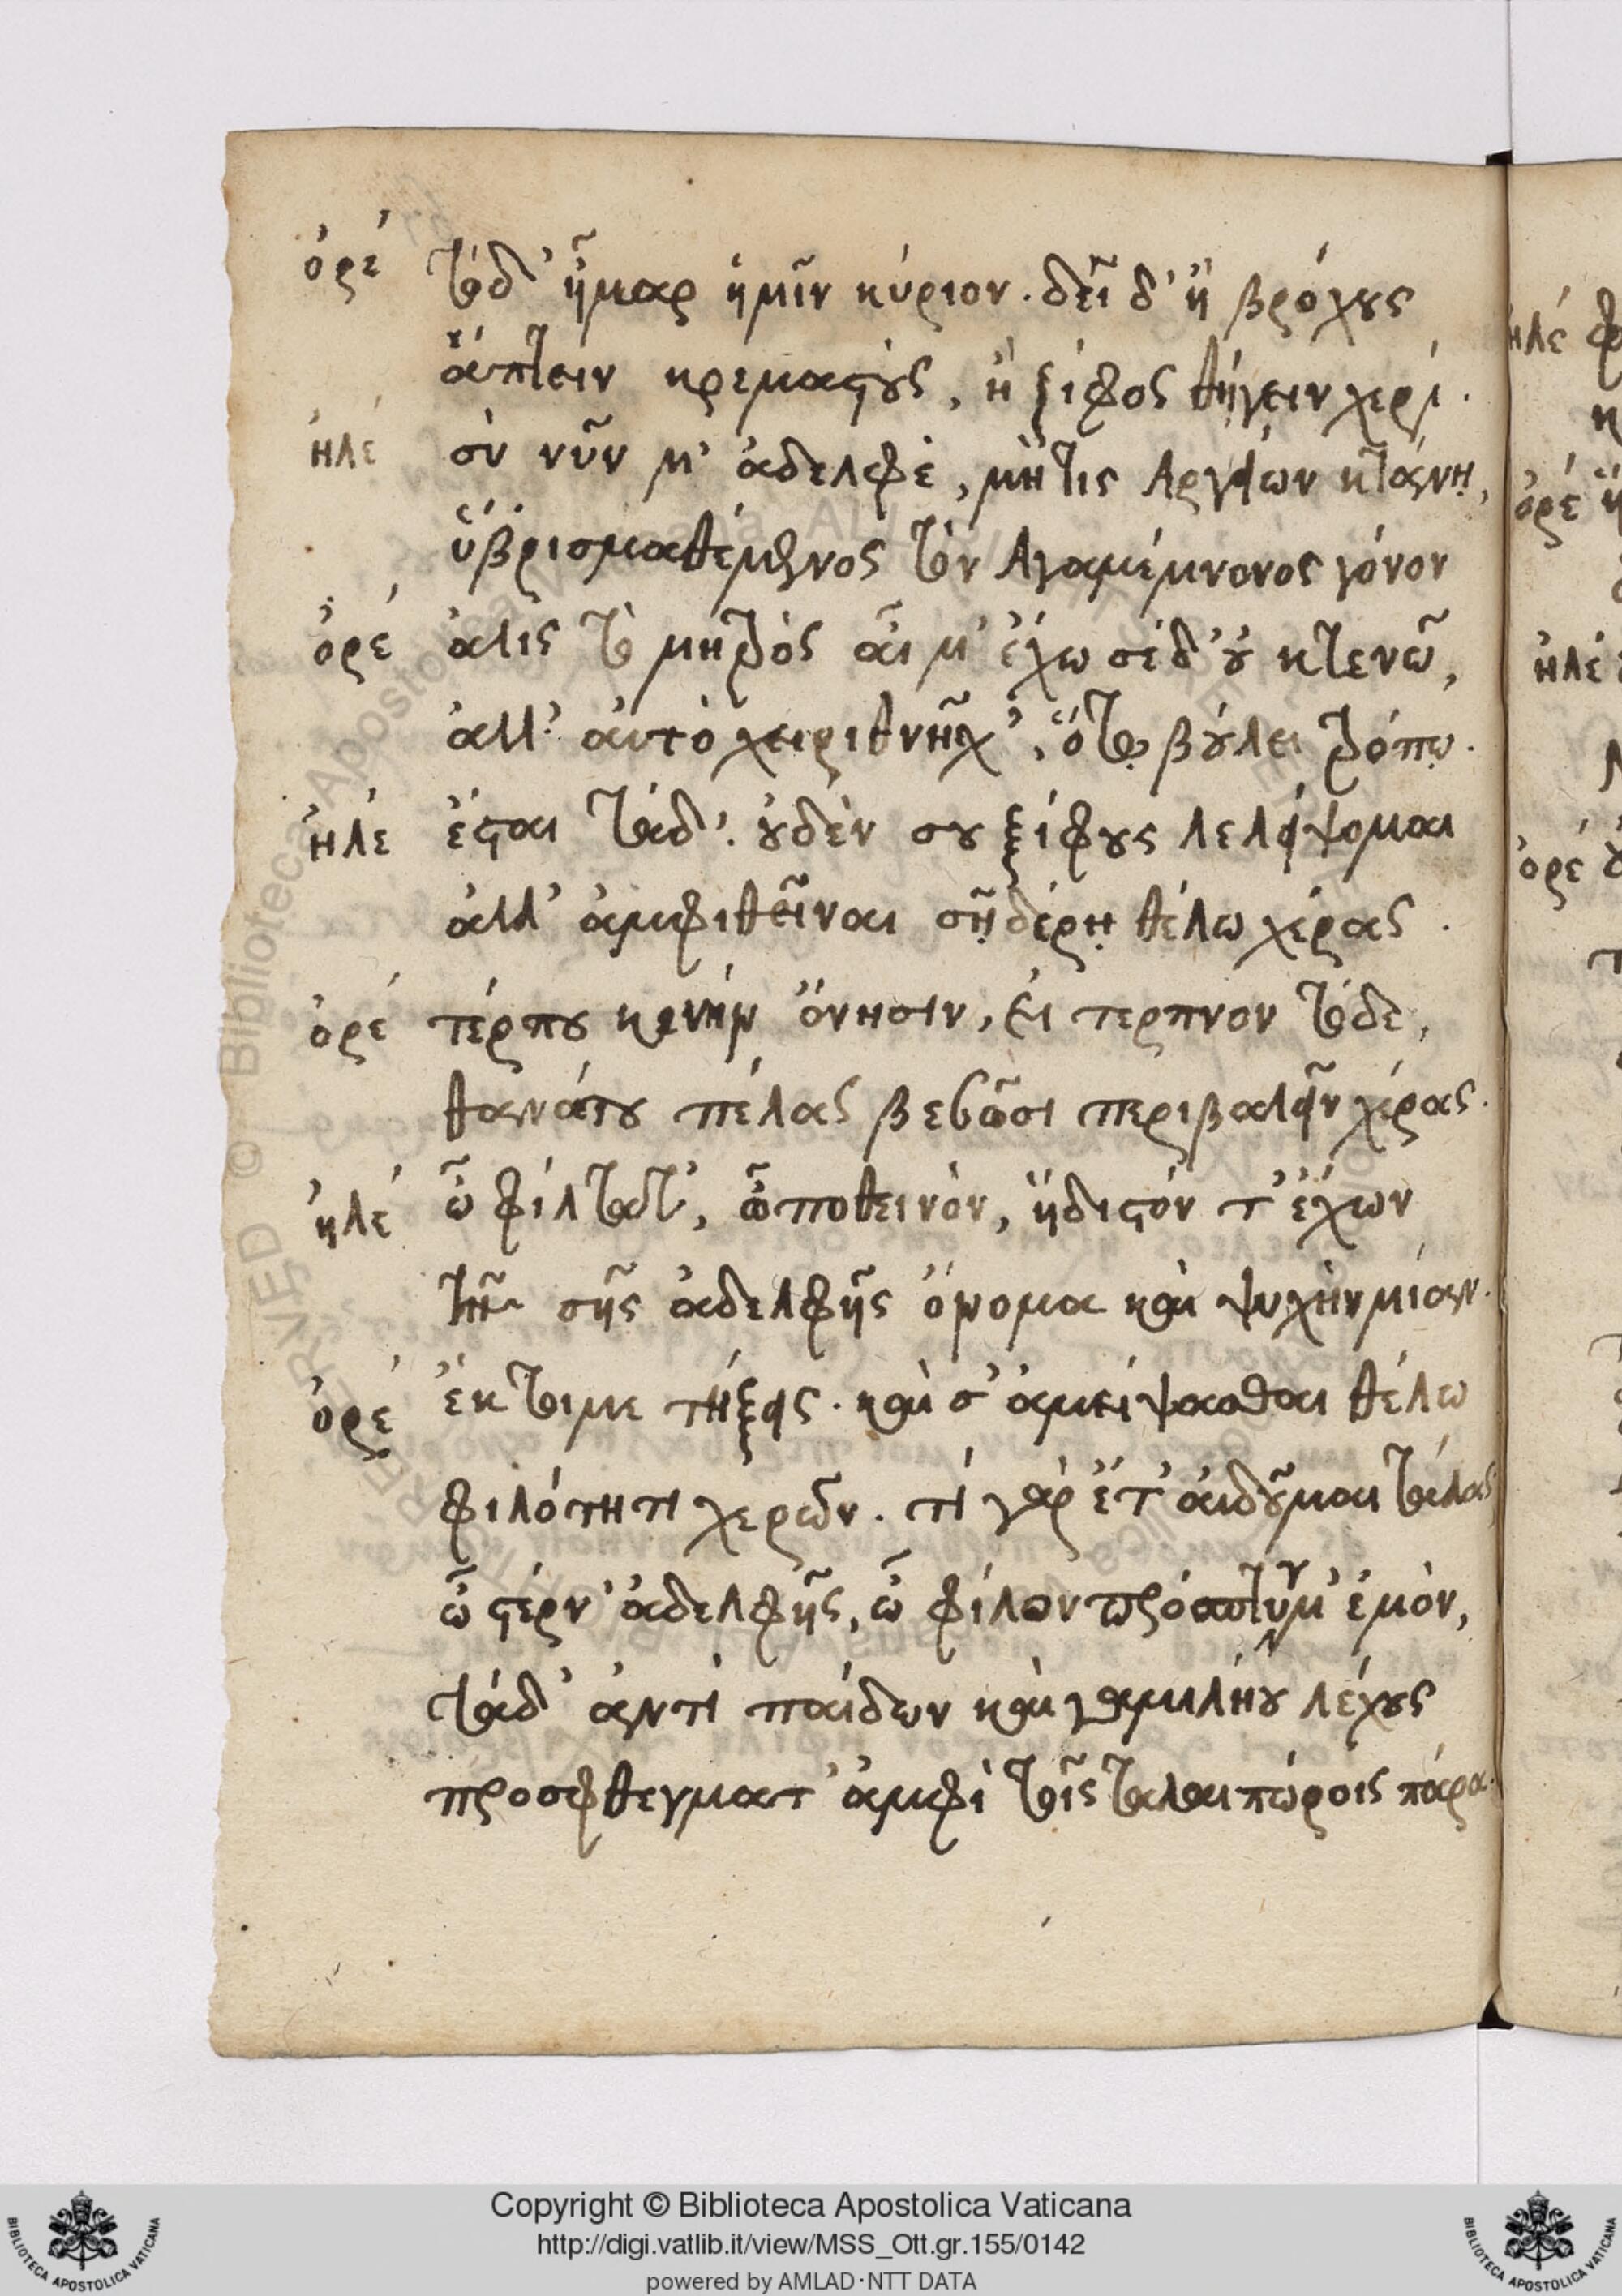 ὀρέ τόδ' ἦμαρ ἡμῖν κύριον. δεῖ δ' ἢ βρόχους
ἅπτειν κρεμαστοὺς, ἢ ξίφος θήγειν χερί.
ἠλέ σὺ νῦν μ' ἀδελφὲ, μὴ τις Ἀργείων κτάνῃ,
ὕβρισμα θέμενος τὸν Ἀγαμέμνονος γόνον
ὀρέ ἅλις τὸ μητρὸς αἷμ' ἔχω σὲ δ' οὐ κτενῶ,
ἀλλ' αὐτὸ χειρὶ θνῆσχ', ὅτῳ βούλει τρόπῳ.
ἠλέ ἔσται τάδ'. οὐδὲν σου ξίφους λελείψομαι
ἀλλ' ἀμφιθεῖναι σῇ δέρῃ θέλω χέρας.
ὀρέ τέρπου κενὴν ὄνησιν, εἰ τερπνον τόδε,
θανάτου πέλας βεβῶσι περιβαλεῖν χέρας.
ἠλέ ὦ φίλτατ', ὦ ποθεινὸν, ἥδιστόν τ' ἔχων
τῆς σῆς ἀδελφῆς ὄνομα καὶ ψυχὴν μίαν.
ὀρέ ἔκ τοι με τήξεις. καὶ σ' ἀμείψασθαι θέλω
φιλότητι χερῶν. τί γὰρ ἔτ' αἰδοῦμαι τάλας
ὦ στέρν' ἀδελφῆς, ὦ φίλον πρόσπτυγμ' ἐμὸν,
τάδ' ἀντὶ παίδων καὶ γαμηλίου λέχους
προσφθεγματ' ἀμφὶ τοῖς ταλαιπώροις πάρα.
ἠλέ
ὀρέ
ἠλέ
ὀρέ
Copyright © Biblioteca Apostolica Vaticana
http://digi.vatlib.it/view/MSS_Ott.gr.155/0142
powered by AMLAD·NTT DATA
BIBLIOTECA APOSTOLICA VATICANA
BIBLIOTECA APOSTOLICA VATICANA